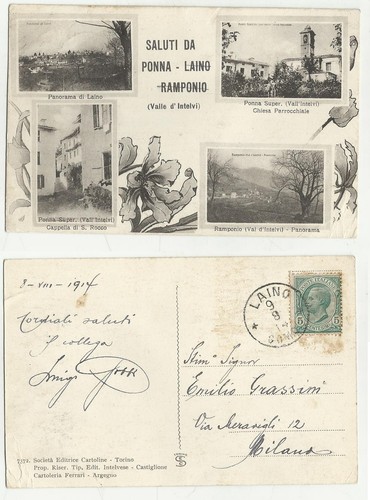 SALUTI DA
PONNA - LAINO
RAMPONIO
(Valle d'Intelvi)
Panorama di Laino
Ponna Super. (Vall'Intelvi)
Chiesa Parrocchiale
Ponna Super. (Vall'Intelvi)
Cappella di S. Rocco
Ramponio (Val d'Intelvi) - Panorama
8-VIII-1914
Cordiali saluti
Il collega
Luigi
7372. Società Editrice Cartoline - Torino
Prop. Riser. Tip. Edit. Intelvese - Castiglione
Cartoleria Ferrari - Argegno
LAINO
Stim° Signor
Emilio Grassini
Via Meravigli 12
Milano